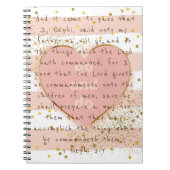 And it came to pass that
I, Nephi, said unto my
father: I will go and do
the things which the Lord
hath commanded, for I
know that the Lord giveth
no commandments unto the
children of men, save he
shall prepare a way for
them that they may
accomplish the thing which he
commandeth them.
Nephi 3:7